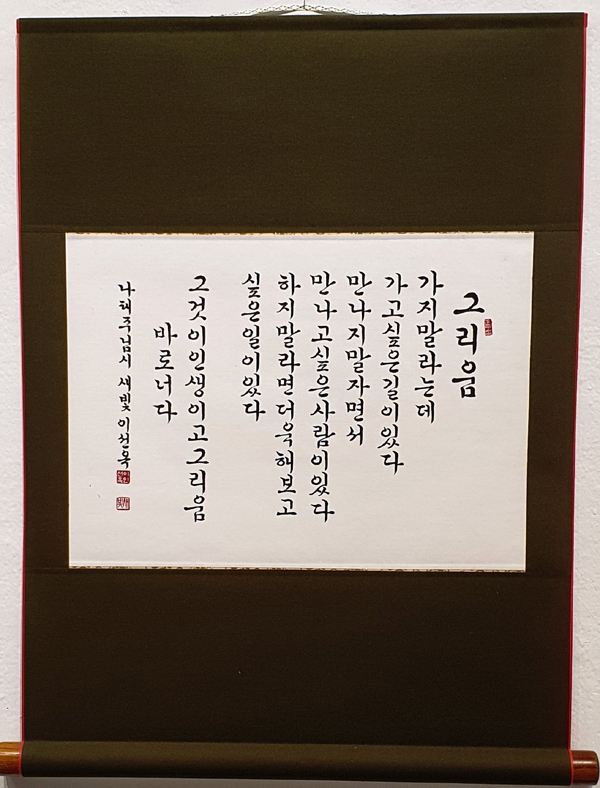 그리움
가지말라는데
가고싶은길이있다
만나지말자면서
만나고싶은사람이있다
하지말라면더욱해보고
싶은일이있다
그것이인생이고그리움
바로너다
나태주님시 새빛 이선욱